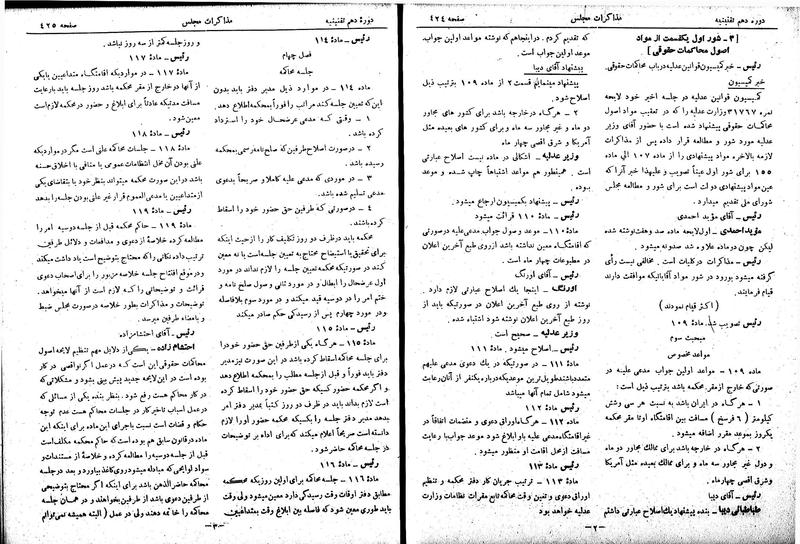 دورهٔ دهم تقنینیه
مذاکرات مجلس
صفحه ٤٢٤
[٣ - شور اول یکقسمت از مواد
اصول محاکمات حقوقی]
رئیس - خبر کمیسیون قوانین عدلیه در باب محاکمات حقوقی.
خبر کمیسیون
کمیسیون قوانین عدلیه در جلسه اخیر خود لایحه
نمره ٣١٧٦٧ وزارت عدلیه را که در تعقیب مواد اصول
محاکمات حقوقی پیشنهاد شده است با حضور آقای وزیر
عدلیه مورد شور و مطالعه قرار داده پس از مذاکرات
لازمه بالاخره مواد پیشنهادی از ماده ١٠٧ الی ماده
١٥٥ برای شور اول عیناً تصویب و علیهذا خبر آنرا که
عین مواد پیشنهادی دولت است برای شور و مطالعه مجلس
شورای ملی تقدیم میدارد.
رئیس - آقای مؤید احمدی
مؤید احمدی - اول لایحه ماده صد وهفت نوشته شده
لیکن چون دو ماده علاوه شد صد و نه میشود.
رئیس - مذاکرات در کلیات است. مخالفی نیست رأی
گرفته میشود بورود در شور مواد آقایانیکه موافقت دارند
قیام فرمایند.
(اکثر قیام نمودند)
رئیس تصویب شد. مادهٔ ١٠٩
مبحث سوم
مواعد مخصوص
ماده ١٠٩ - مواعد اولین جواب مدعی علیه در
صورتی که خارج از مقر محکمه باشد بترتیب ذیل است:
١ - هرگاه در ایران باشد به نسبت هر سی وشش
کیلومتر (٦ فرسخ) مسافت بین اقامتگاه او تا مقر محکمه
یکروز بموعد مقرر اضافه میشود.
٢ - هرگاه در خارجه باشد برای ممالک مجاور دو ماه
و دول غیر مجاور سه ماه و برای ممالک بعیده مثل آمریکا
و شرق اقصی چهار ماه.
رئیس - آقای دیبا
طباطبائی دیبا - بنده پیشنهاد یک اصلاح عبارتی داشتم
که تقدیم کردم. در اینجا هم که نوشته مواعد اولین جواب.
موعد اولین جواب است.
پیشنهاد آقای دیبا
پیشنهاد مینمایم قسمت ٢ از ماده ١٠٩ بترتیب ذیل
اصلاح شود.
٢ - هرگاه در خارجه باشد برای کشور های مجاور
دو ماه و غیر مجاور سه ماه و برای کشور های بعیده مثل
آمریکا و شرق اقصی چهار ماه
وزیر عدلیه - اشکالی در ماده نیست اصلاح عبارتی
است. همینطور هم مواعد اشتباهاً چاپ شده و موعد
بوده.
رئیس - پیشنهاد بکمیسیون ارجاع میشود.
رئیس - مادهٔ ١١٠ قرائت میشود
مادهٔ ١١٠ - موعد وصول جواب. مدعی علیه در صورتی
که اقامتگاه معین نداشته باشد از روی طبع آخرین اعلان
در مطبوعات چهار ماه است.
رئیس - آقای اورنگ
اورنگ - اینجا یک اصلاح عبارتی لازم دارد.
نوشته از روی طبع آخرین اعلان در صورتیکه باید از
روز طبع آخرین اعلان نوشته شود اشتباه شده.
وزیر عدلیه - صحیح است.
رئیس - اصلاح میشود. مادهٔ ١١١
مادهٔ ١١١ - در صورتیکه در یک دعوی مدعی علیهم
متعدد باشند طویل ترین موعدیکه درباره یکنفر از آنان رعایت
میشود شامل تمام آنها میباشد
رئیس - مادهٔ ١١٢
ماده ١١٢ - هرگاه اوراق دعوی و منضمات اتفاقاً در
غیر اقامتگاه مدعی علیه باو ابلاغ شود موعد جواب با رعایت
مسافت از محل اقامت او منظور میشود.
رئیس - مادهٔ ١١٣
مادهٔ ١١٣ - ترتیب جریان کار دفتر محکمه و تنظیم
اوراق دعوی و تعیین وقت محاکمه تابع مقررات نظامات وزارت
عدلیه خواهد بود
-٢-
دورهٔ دهم تقنینیه
مذاکرات مجلس
صفحه ٤٢٥
رئیس - مادهٔ ١١٤
فصل چهارم
جلسه محاکمه
ماده ١١٤ - در موارد ذیل مدیر دفتر باید بدون
این که تعیین جلسه کند مراتب را فوراً بمحکمه اطلاع دهد.
١ - وقتی که مدعی عرضحال خود را استرداد
کرده باشد.
٢ - در صورت اصلاح طرفین که صلح نامه رسمی بمحکمه
رسیده باشد.
٣ - در موردی که مدعی علیه کاملا و صریحاً بدعوی
مدعی تسلیم شده باشد.
٤ - در صورتی که طرفین حق حضور خود را اسقاط
کرده باشند.
محکمه باید در ظرف دو روز تکلیف کار را از حیث اینکه
برای تحقیق یا استیضاح محتاج به تعیین جلسه است یا نه معین
کند در صورتیکه محکمه تعیین جلسه را لازم نداند در مورد
اول عرضحال را ابطال و در مورد ثانی وصول صلح نامه و
ختم امر را در دوسیه قید میکند و در مورد سوم بلافاصله
و در مورد چهارم پس از رسیدگی حکم صادر میکند
رئیس - مادهٔ ١١٥
مادهٔ ١١٥ - هرگاه یکی از طرفین حق حضور خود را
برای جلسه محاکمه اسقاط کرده باشد در این صورت نیز مدیر
دفتر باید فوراً و قبل از جلسه مطلب را بمحکمه اطلاع دهد
و اگر محکمه حضور کسیکه حق حضور خود را اسقاط کرده
است لازم بداند باید در ظرف دو روز کتباً بمدیر دفتر امر
بدهد مدیر دفتر جلسه را بکسیکه محکمه حضور او را لازم
دانسته است صریحاً اعلام میکند که برای اداره توضیحات
در جلسه محاکمه حاضر شود.
رئیس - مادهٔ ١١٦
مادهٔ ١١٦ - جلسه محاکمه برای اولین روزیکه محکمه
مطابق دفتر اوقات وقت رسیدگی دارد معین میشود ولی وقت
باید طوری معین شود که فاصله بین ابلاغ وقت بمتداعیین
و روز جلسه کمتر از سه روز نباشد.
رئیس - مادهٔ ١١٧
مادهٔ ١١٧ - در مواردیکه اقامتگاه متداعیین یا یکی
از آنها در خارج از مقر محکمه باشد روز جلسه باید با رعایت
مسافت مدتیکه عادتاً برای ابلاغ و حضور در محکمه لازم است
معین شود.
رئیس - مادهٔ ١١٨
مادهٔ ١١٨ - جلسات محاکمه علنی است مگر در مواردیکه
علنی بودن آن مخل انتظامات عمومی یا منافی با اخلاق حسنه
باشد در این صورت محکمه میتواند بنظر خود یا بتقاضای یکی
از متداعیین یا مدعی العموم قرار غیر علنی بودن جلسه را بدهد
رئیس - مادهٔ ١١٩
مادهٔ ١١٩ - حاکم محکمه قبل از جلسه دوسیه امر را
مطالعه کرده خلاصهٔ از دعوی و مدافعات و دلائل طرفین
ترتیب داده نکاتی را که محتاج بتوضیح است یاد داشت میکند
و در موقع افتتاح جلسه خلاصه مزبور را برای اصحاب دعوی
قرائت و توضیحاتی را که لازم است از آنها میخواهد.
توضیحات و مذاکرات بطور خلاصه در صورت مجلس ضبط
و بامضاء طرفین میرسد.
رئیس - آقای احتشام زاده
احتشام زاده - یکی از دلایل مهم تنظیم لایحه اصول
محاکمات حقوقی این است که در عمل اگر نواقصی در کار
بوده است در این لایحه جدید پیش بینی بشود و مشکلاتی که
در کار محاکم هست رفع شود. بنظر بنده یکی از مسائلی که
در عمل اسباب تاخیر کار در جلسات محاکم هست عدم توجه
حکام و قضات است نسبت باجرای این ماده برای اینکه این
ماده در قانون سابق هم بوده است که حاکم محکمه مکلف است
قبل از جلسه دوسیه را مطالعه کرده و خلاصهٔ از مستندات و
سواد لوایحی که مبادله میشود روی کاغذ بیاورد و بعد در جلسه
محاکمه حاضر الذهن باشد برای اینکه اگر محتاج بتوضیحی
از طرفین دعوی باشد از طرفین بخواهند و در همان جلسه
محاکمه را خاتمه دهند ولی در عمل (البته همیشه نمی توانم
-٣-